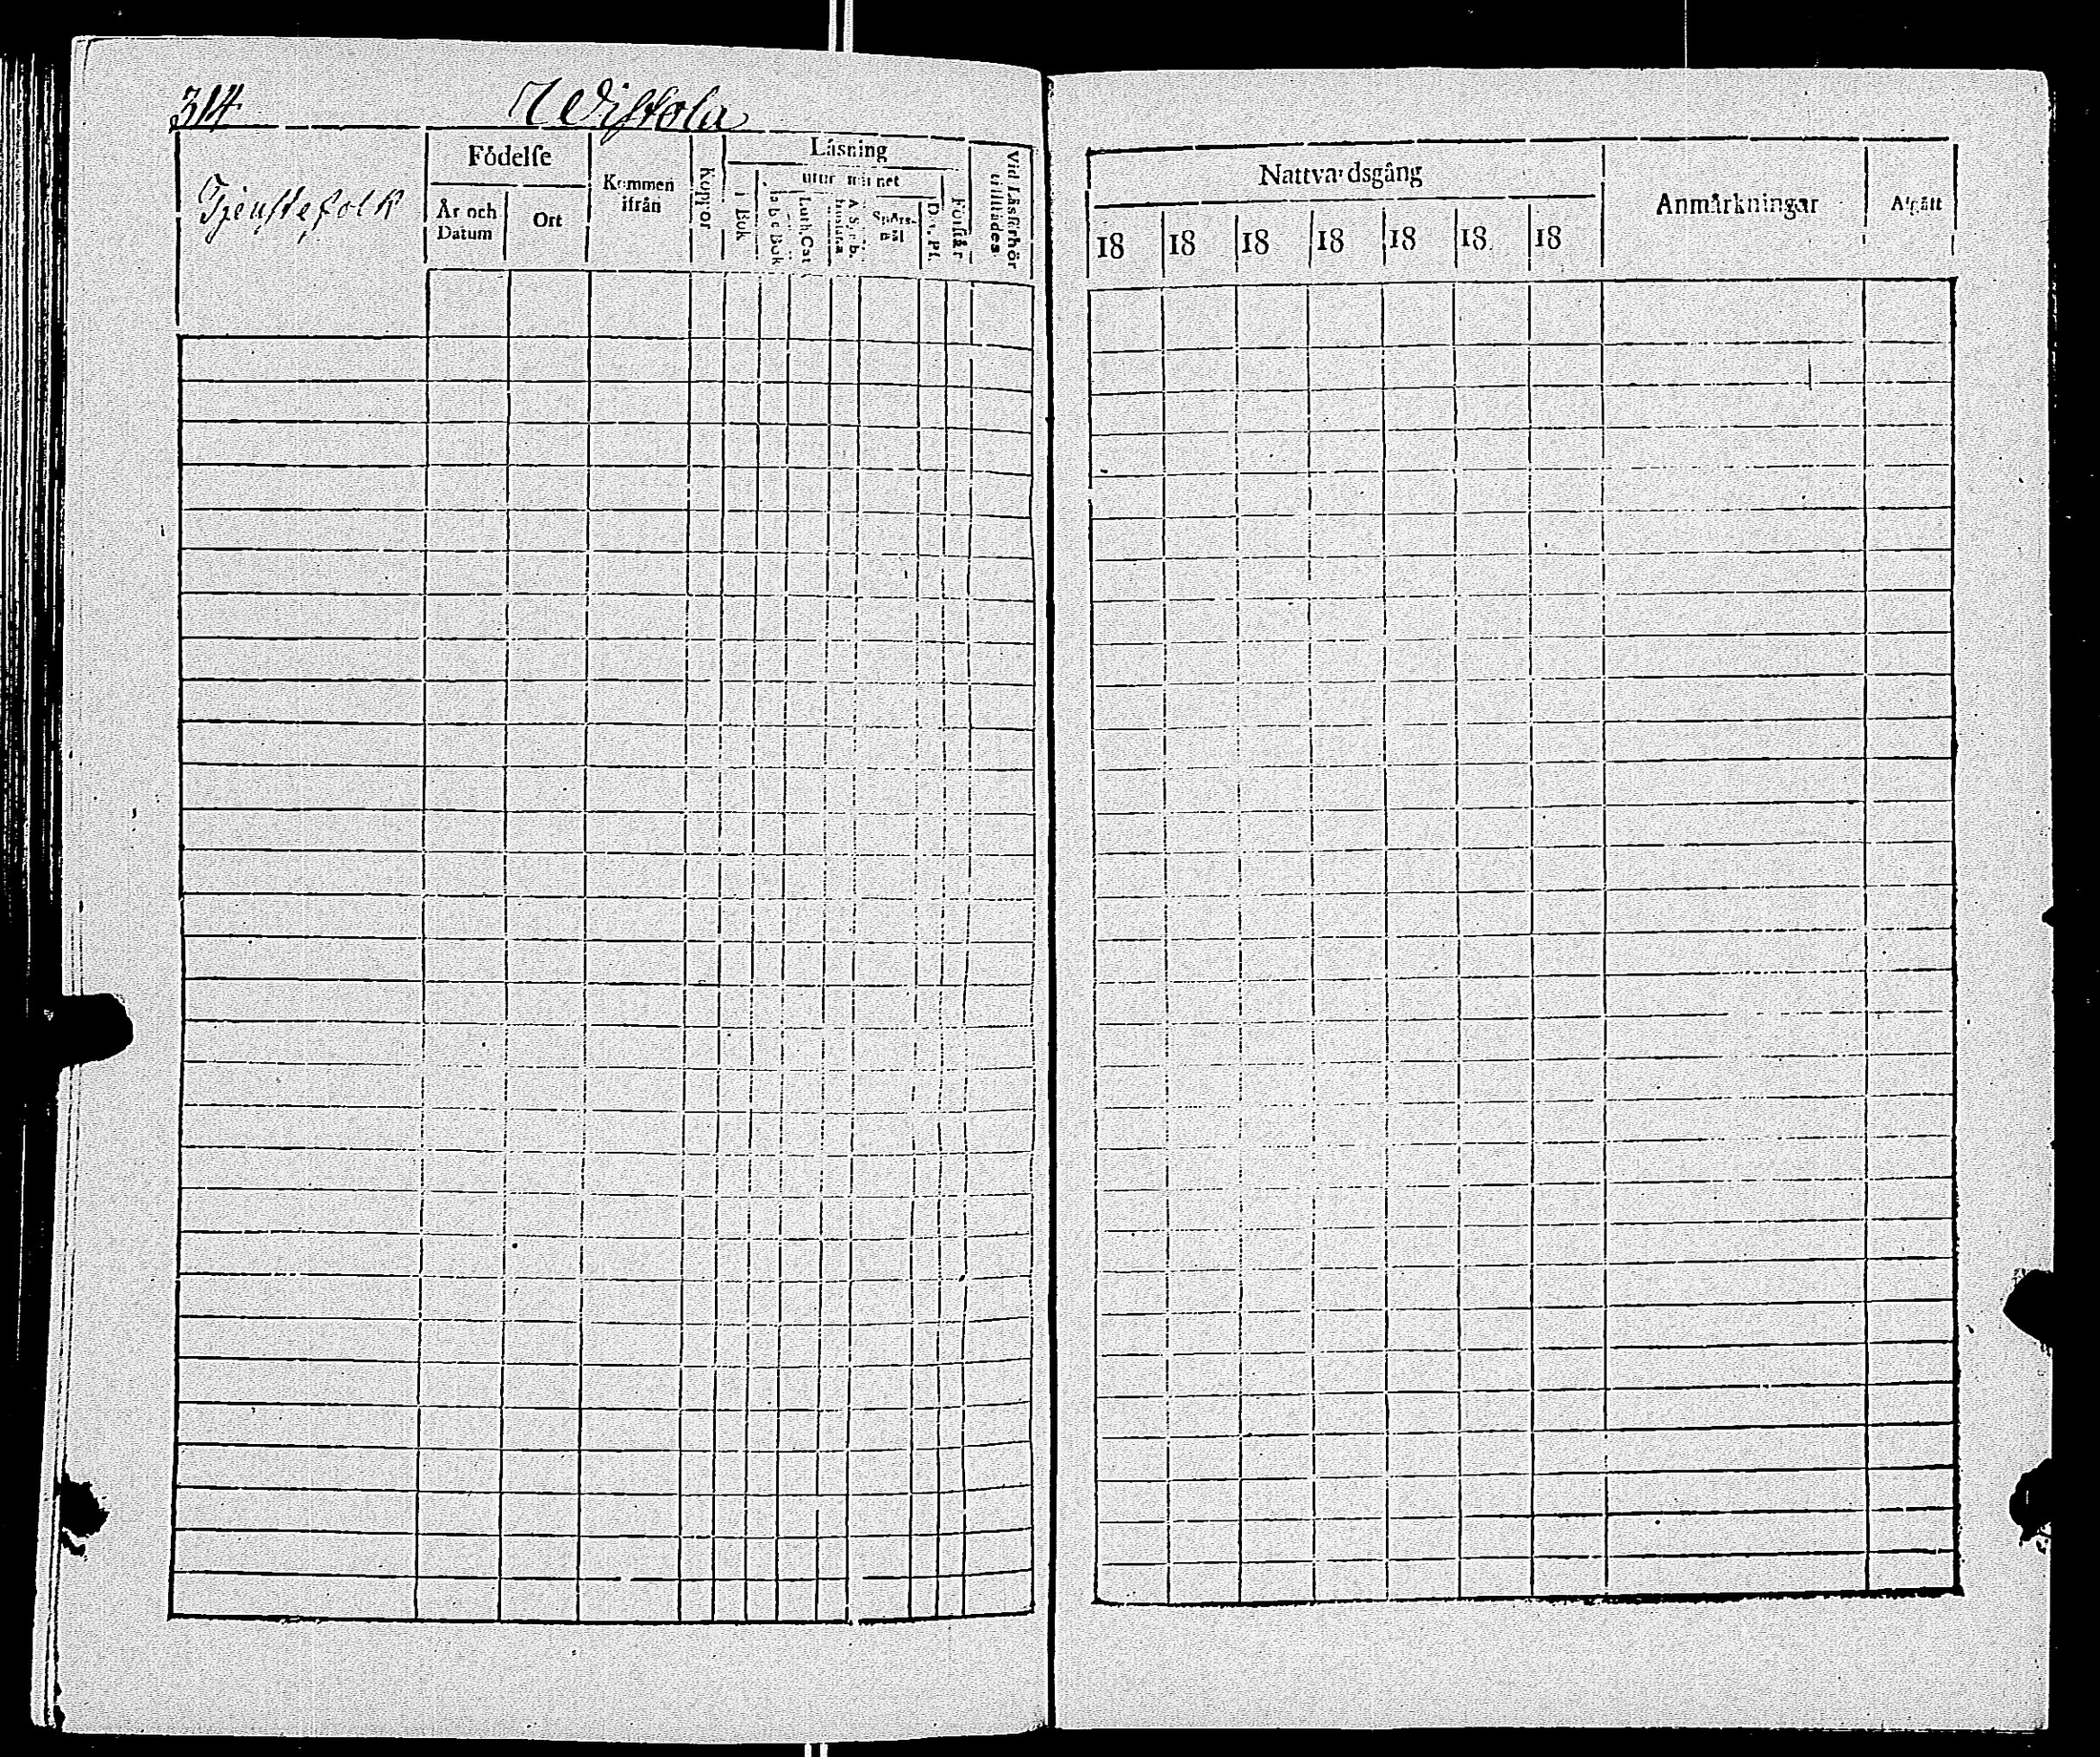 314 Wistola
Tjenstefolk
Födelse
År och Datum
Ort
Kommen ifrån
Koppor
Läsning
i Bok
utur minnet
a b c Bok
Luth. Cat
A. Symb.
Spörsmål
D. Ps.
Förstår
Vid Läsförhör tillstädes
Nattvardsgång
18 18 18 18 18 18 18
Anmärkningar
Afgått